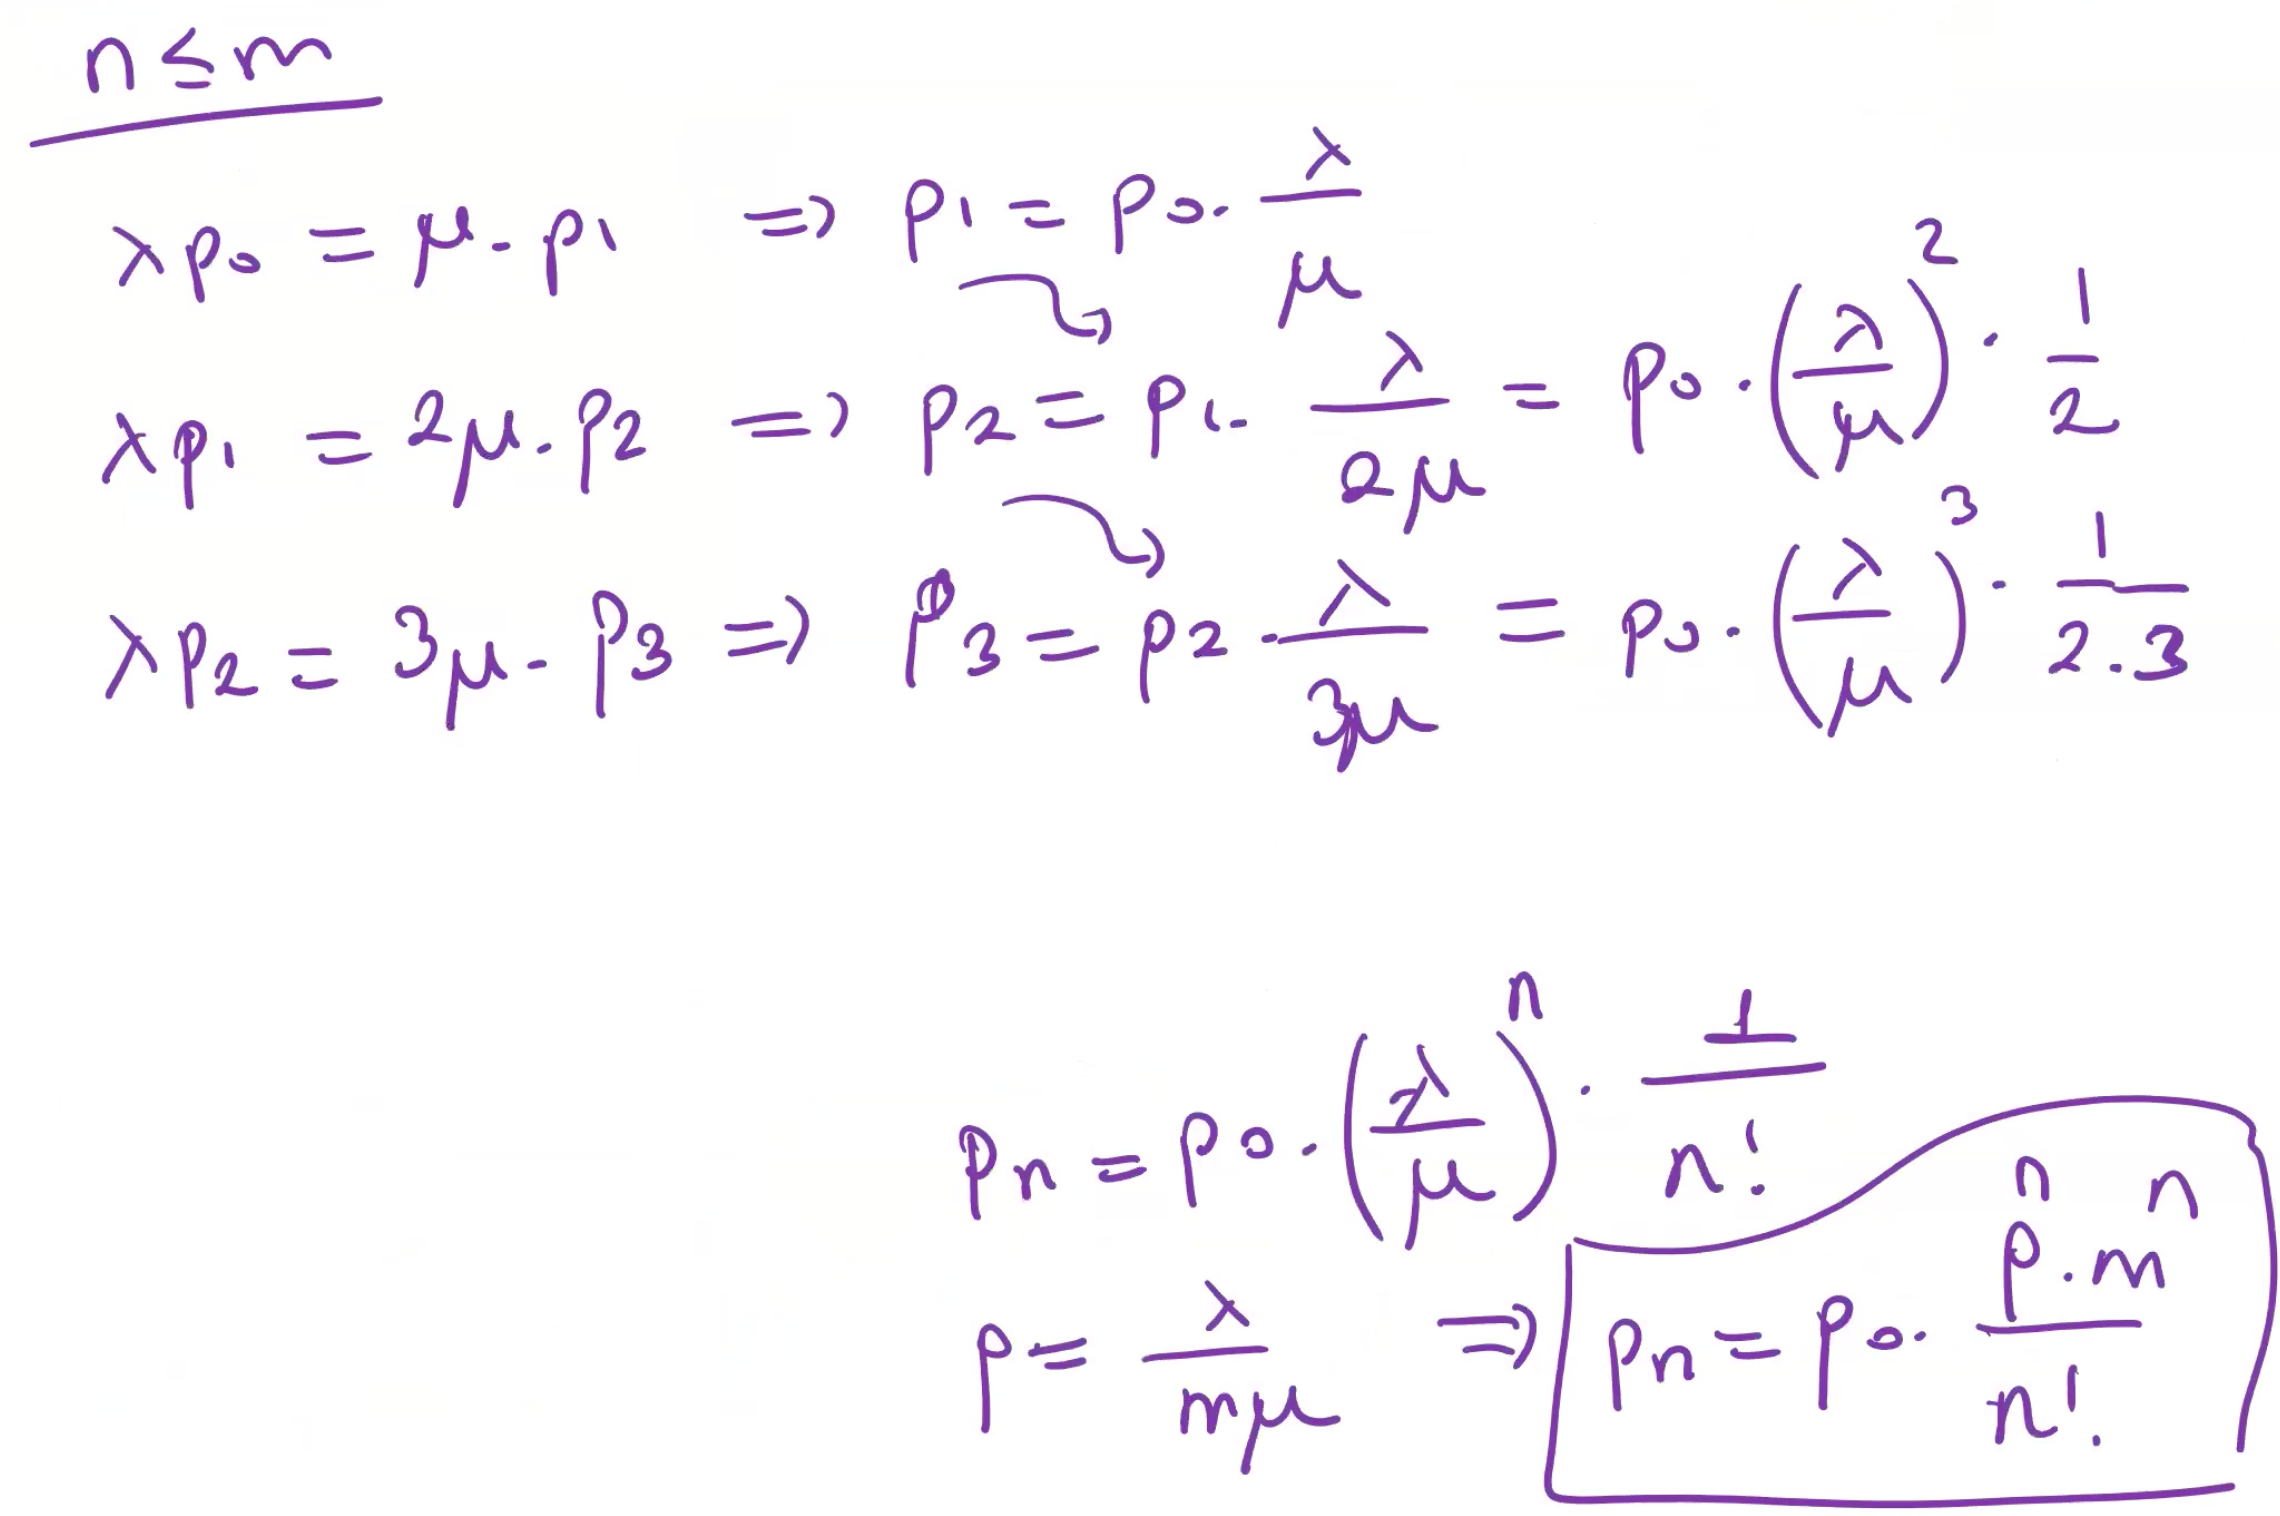 n ≤ m
λp₀ = μ · p₁ ⇒ p₁ = p₀ · λ/μ
λp₁ = 2μ · p₂ ⇒ p₂ = p₁ · λ/2μ = p₀ · (λ/μ)² · 1/2
λp₂ = 3μ · p₃ ⇒ p₃ = p₂ · λ/3μ = p₀ · (λ/μ)³ · 1/2.3
pₙ = p₀ · (λ/μ)ⁿ · 1/n!
ρ = λ/mμ ⇒ pₙ = p₀ · ρⁿ · mⁿ/n!